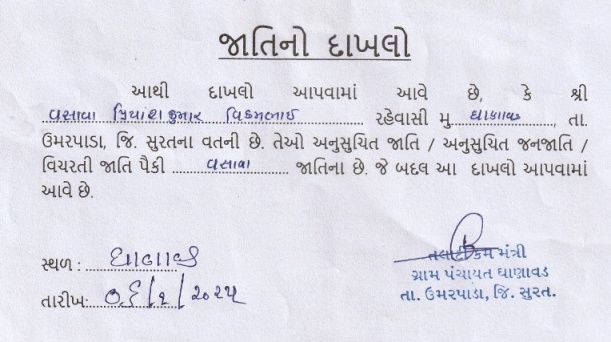 જાતિનો દાખલો
આથી દાખલો આપવામાં આવે છે, કે શ્રી
વસાવા પ્રિયાંશકુમાર વિક્રમભાઈ રહેવાસી મુ ઘાણાવડ, તા.
ઉમરપાડા, જિ. સુરતના વતની છે. તેઓ અનુસુચિત જાતિ / અનુસુચિત જનજાતિ /
વિચરતી જાતિ પૈકી વસાવા જાતિના છે. જે બદલ આ દાખલો આપવામાં
આવે છે.
સ્થળ : ઘાણાવડ
તારીખઃ ૦૬/૧/૨૦૨૫
તલાટી કમ મંત્રી
ગ્રામ પંચાયત ઘાણાવડ
તા. ઉમરપાડા, જિ. સુરત.